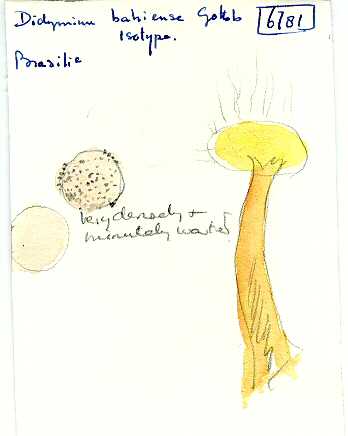 Didymium bahiense Gottsb
6781
Isotype.
Brasilie
very densely +
minutely warted